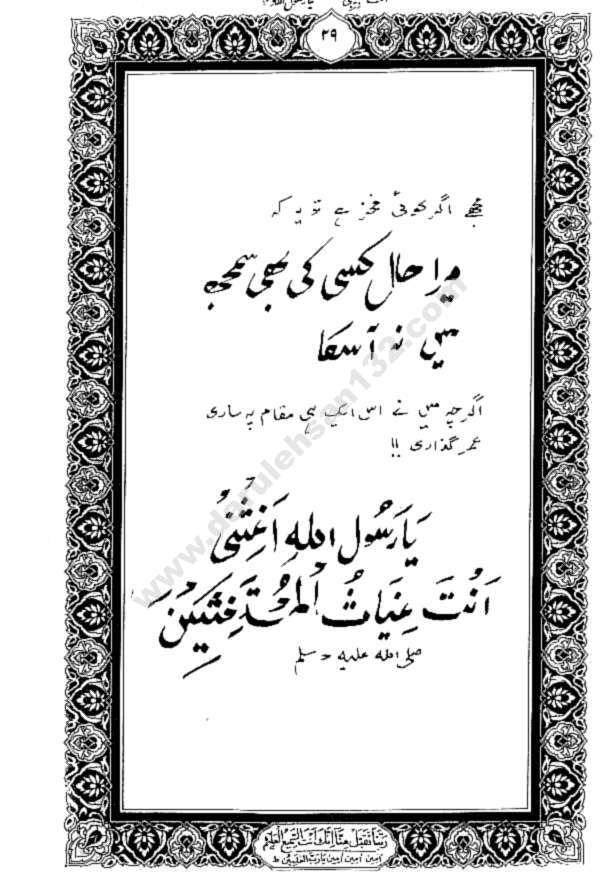 ۲۹
مجھے اگر کوئی فخر ہے تو یہ کہ
میرا حال کسی کی بھی سمجھ
میں نہ آ سکا
اگرچہ میں نے اس ایک ہی مقام پہ ساری
عمر گذاری !!
يَا رَسُولَ اللهِ اَغِثْنِي
اَنْتَ غِيَاثُ الْمُسْتَغِيْثِيْنَ
صلی اللہ علیہ وسلم
www.darulehsan132.com
رَبَّنَا تَقَبَّلْ مِنَّا اِنَّكَ اَنْتَ السَّمِيْعُ الْعَلِيْمُ
اٰمين اٰمين اٰمين يارب العٰلمين ط